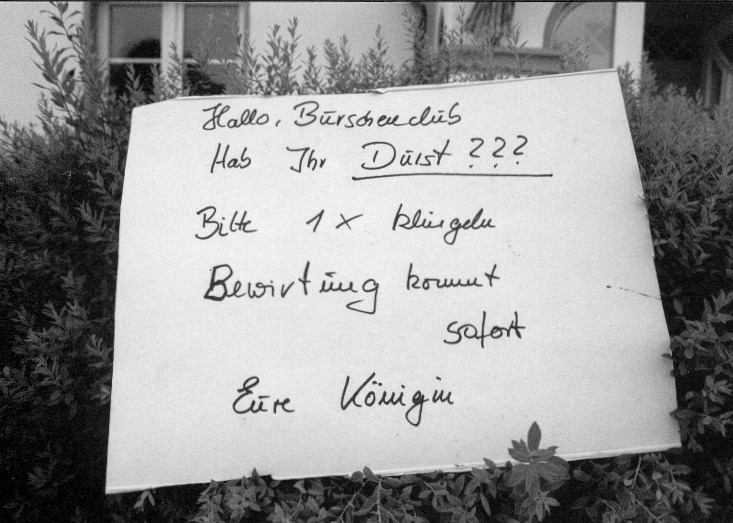 Hallo, Burschenclub
Hab Ihr Durst ???
Bitte 1 x klingeln
Bewirtung kommt
sofort
Eure Königin